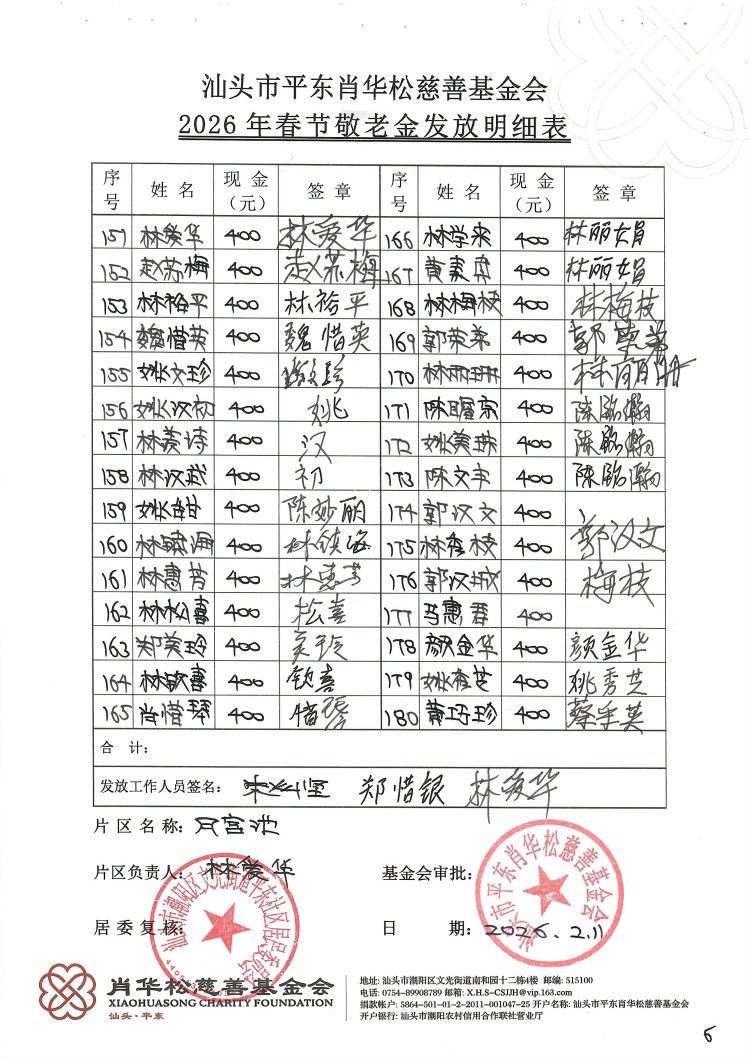 汕头市平东肖华松慈善基金会
2026年春节敬老金发放明细表
序号 姓名 现金（元） 签章 序号 姓名 现金（元） 签章
151 林爱华 400 林爱华 166 林学来 400 林丽娟
152 赵苏梅 400 赵苏梅 167 黄素 400 林丽娟
153 林裕平 400 林裕平 168 林梅枝 400 林梅枝
154 魏惜英 400 魏惜英 169 郭荣弟 400 郭 弟
155 姚文珍 400 170 林丽珊 400 林丽珊
156 姚汉初 400 姚 171 陈 400 陈 瀚
157 林 诗 400 汉 172 姚美珠 400 陈 瀚
158 林汉武 400 初 173 陈文 400 陈 瀚
159 姚 400 陈妙丽 174 郭汉文 400 郭汉文
160 林 400 林镇海 175 林 枝 400
161 林惠芳 400 林惠芳 176 郭汉城 400 梅枝
162 林松喜 400 松喜 177 马惠君 400
163 郑美玲 400 美玲 178 颜金华 400 颜金华
164 林钦喜 400 钦喜 179 姚秀芝 400 姚秀芝
165 肖惜琴 400 惜琴 180 黄巧珍 400 蔡 英
合 计：
发放工作人员签名： 郑惜银 林爱华
片区名称：
片区负责人： 林爱华 基金会审批：
居委复核： 日 期：2026.2.11
汕头市潮阳区文光街道平东社区居民委员会
汕头市平东肖华松慈善基金会
肖华松慈善基金会
XIAOHUASONG CHARITY FOUNDATION
汕头·平东
地址: 汕头市潮阳区文光街道南和园十二栋4楼 邮编: 515100
电话: 0754-89908789 邮箱: X.H.S-CSJJH@vip.163.com
捐款帐户: 5864-501-01-2-2011-001047-25 开户名称: 汕头市平东肖华松慈善基金会
开户银行: 汕头市潮阳农村信用合作联社营业厅
6